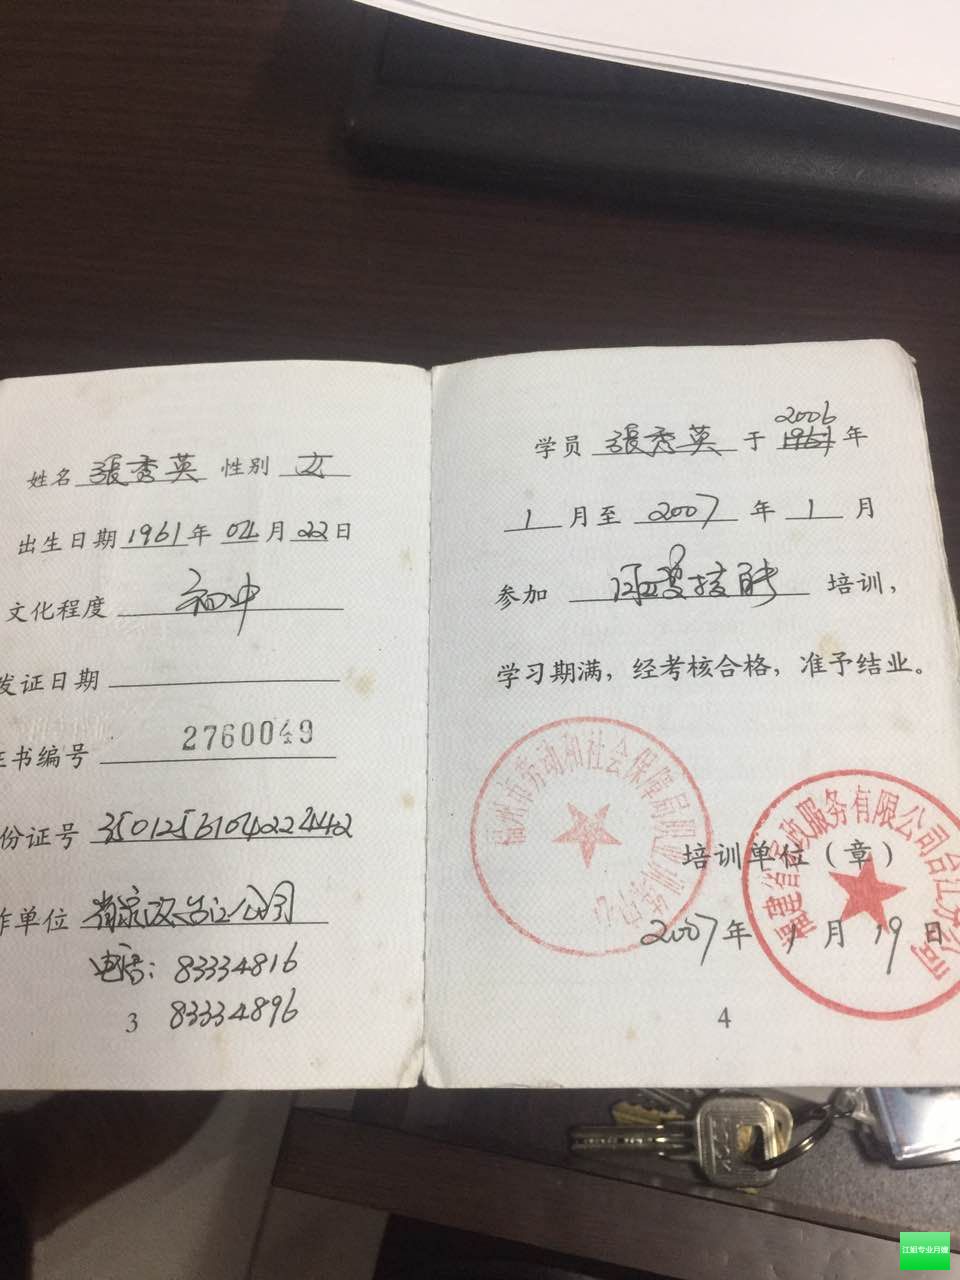 姓名 張秀英 性别 女
出生日期 1961 年 04 月 22 日
文化程度 初中
发证日期
证书编号 2760049
份证号 350125610422442
作单位 省家政台江公司
电话：83334816
83334896
3
学员 張秀英 于 1961 2006 年
1 月至 2007 年 1 月
参加 母婴技能 培训，
学习期满，经考核合格，准予结业。
福州市劳动和社会保障局职业培训中心
福建省家政服务有限公司台江分公司
培训单位（章）
2007 年 1 月 19 日
4
江姐专业月嫂